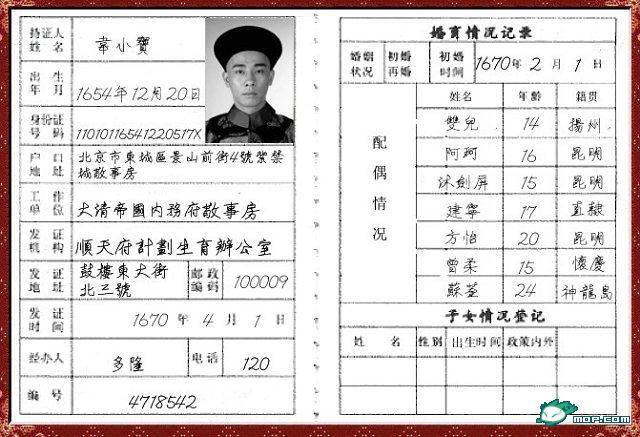 持证人
姓名
韋小寶
出生
年月
1654年12月20日
身份证
号码
11010116541220517X
户口
地址
北京市東城區景山前街4號紫禁
城敬事房
工作
单位
大清帝國内務府敬事房
发证
机构
順天府計劃生育辦公室
发证
地址
鼓樓東大街
北三號
邮政
编码
100009
发证
时间
1670年4月1日
经办人
多隆
电话
120
编号
4718542
婚育情况记录
婚姻
状况
初婚
再婚
初婚
时间
1670年2月1日
配偶情况
姓名 年龄 籍贯
雙兒 14 揚州
阿珂 16 昆明
沐劍屏 15 昆明
建寧 17 直隸
方怡 20 昆明
曾柔 15 懷慶
蘇荃 24 神龍島
子女情况登记
姓名 性别 出生时间 政策内外
mop.com